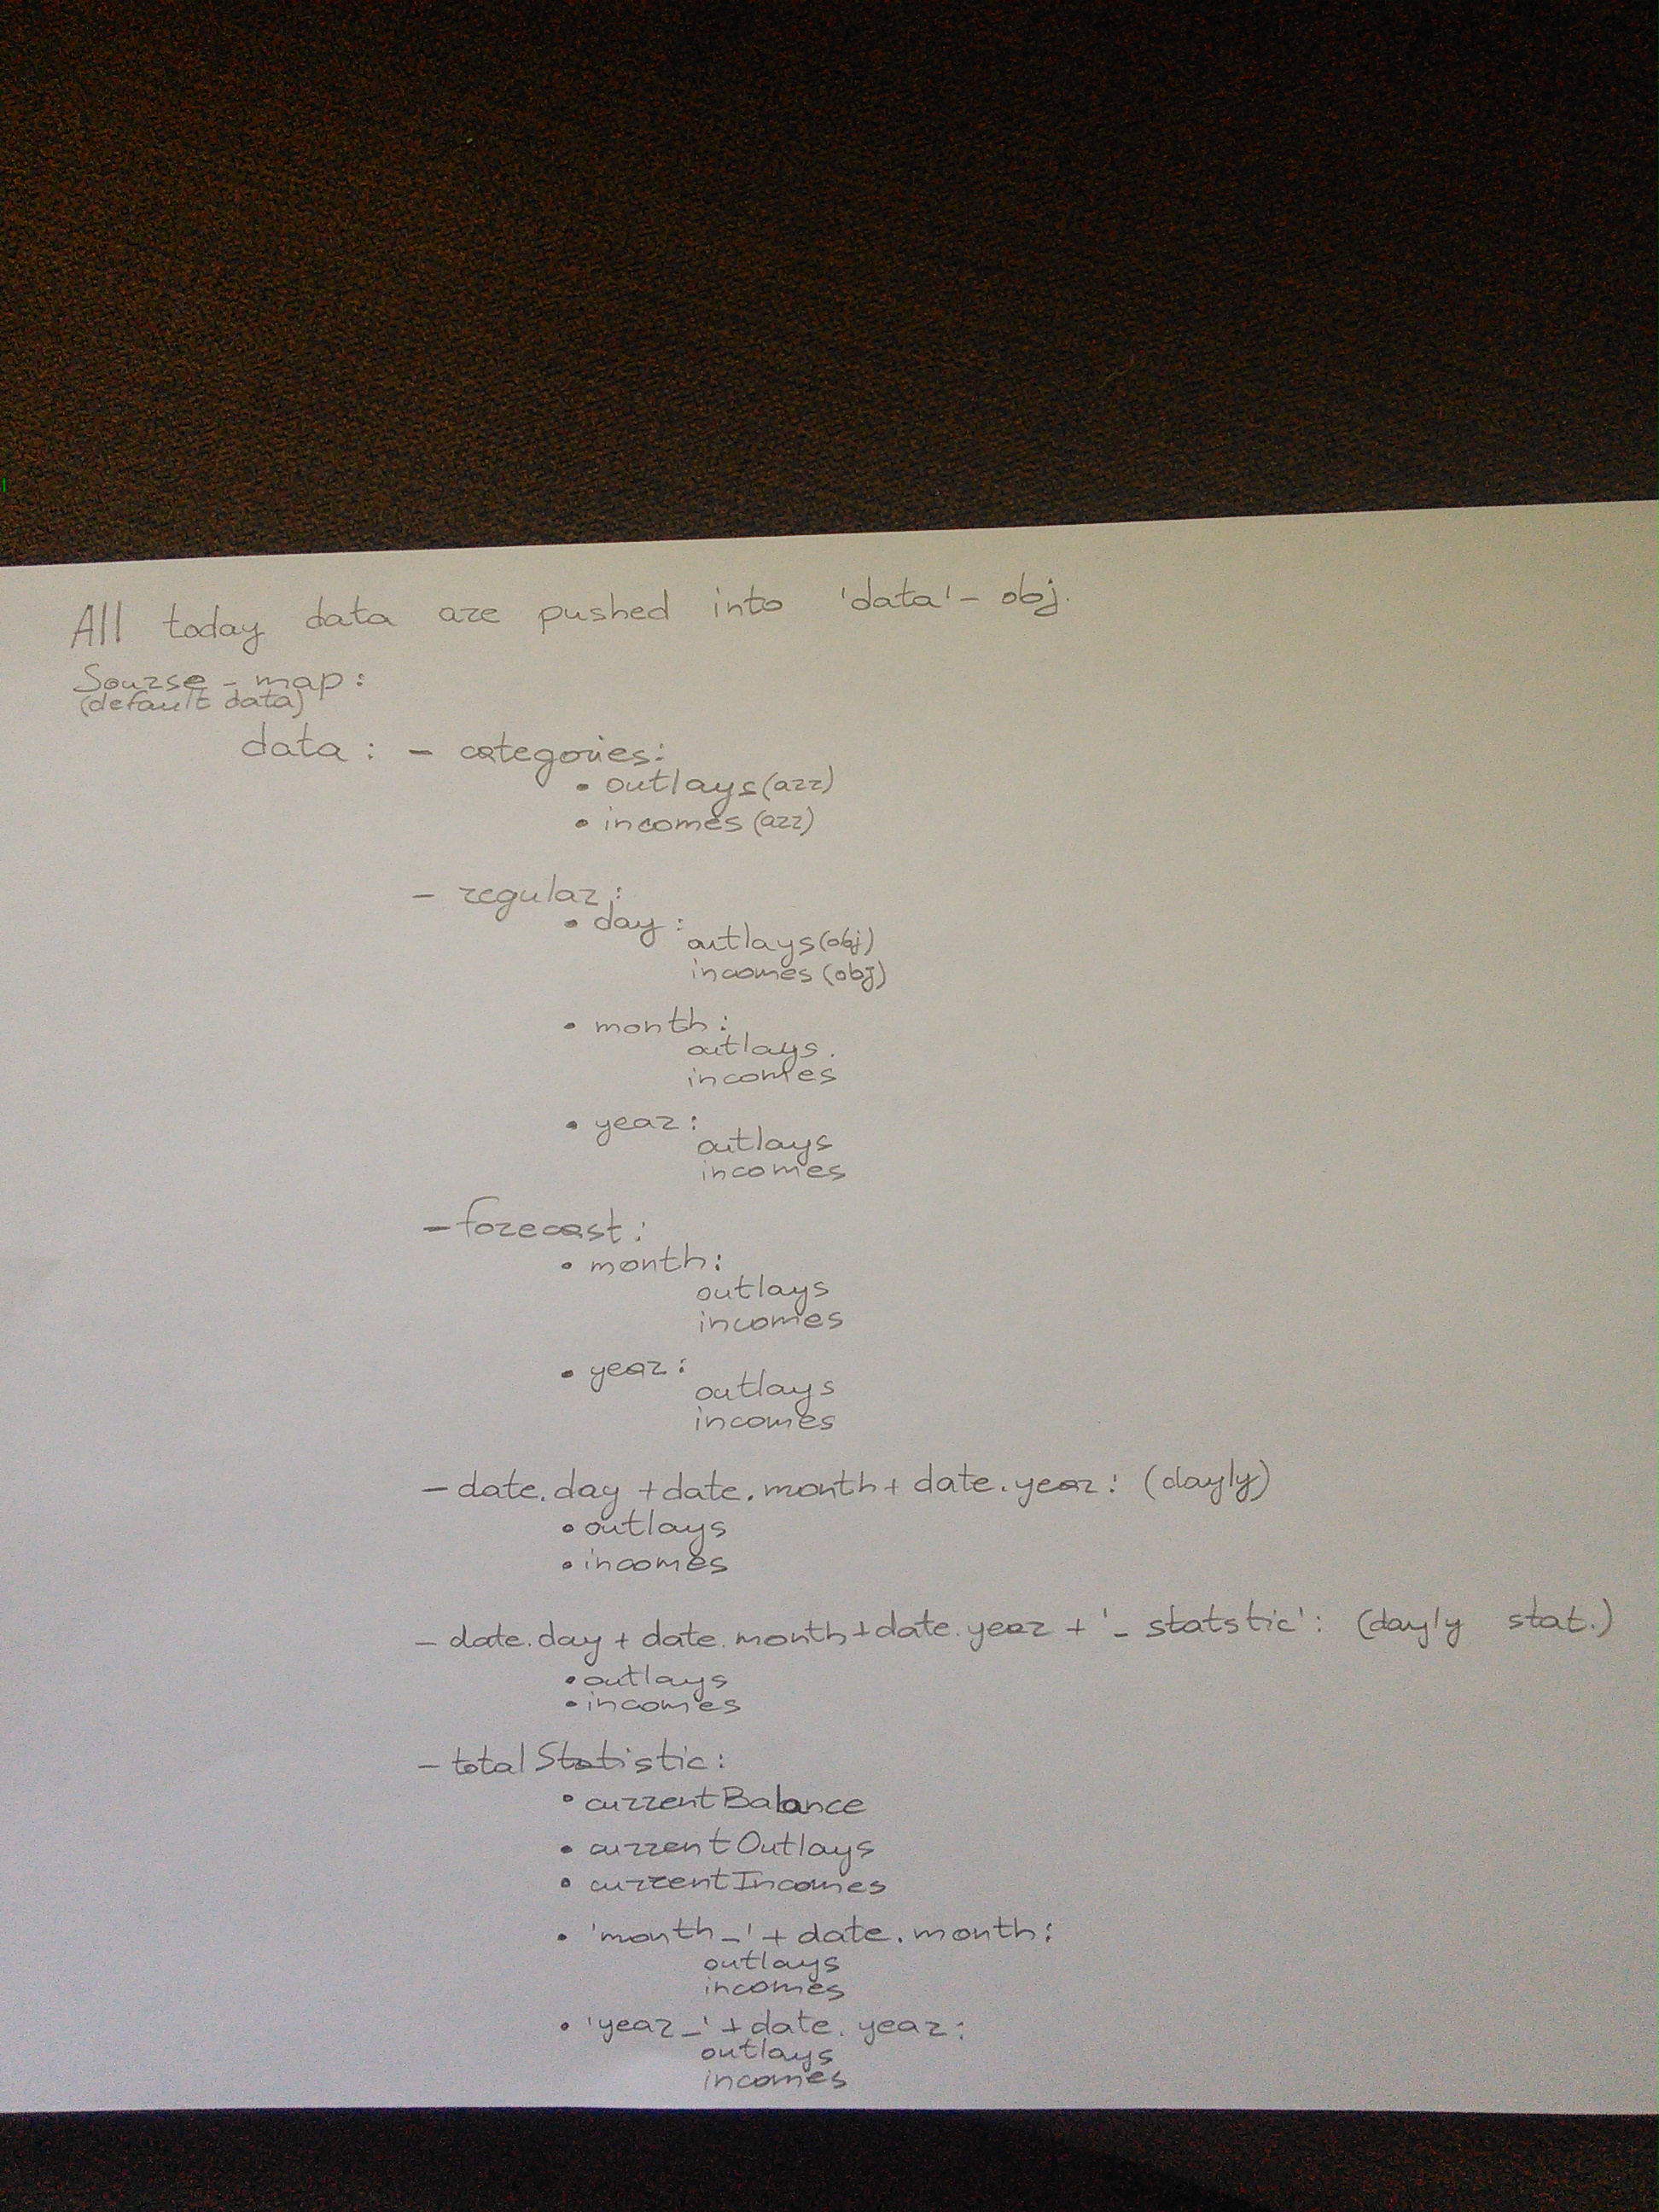 All today data are pushed into 'data' - obj.
Sourse - map:
(default data)
data: - categories:
• outlays (arr)
• incomes (arr)
- regular:
• day:
outlays (obj)
incomes (obj)
• month:
outlays.
incomes
• year:
outlays
incomes
- forecast:
• month:
outlays
incomes
• year:
outlays
incomes
- date.day + date.month + date.year: (dayly)
• outlays
• incomes
- date.day + date.month + date.year + '_statstic': (dayly stat.)
• outlays
• incomes
- totalStatistic:
• currentBalance
• currentOutlays
• currentIncomes
• 'month_' + date.month:
outlays
incomes
• 'year_' + date.year:
outlays
incomes